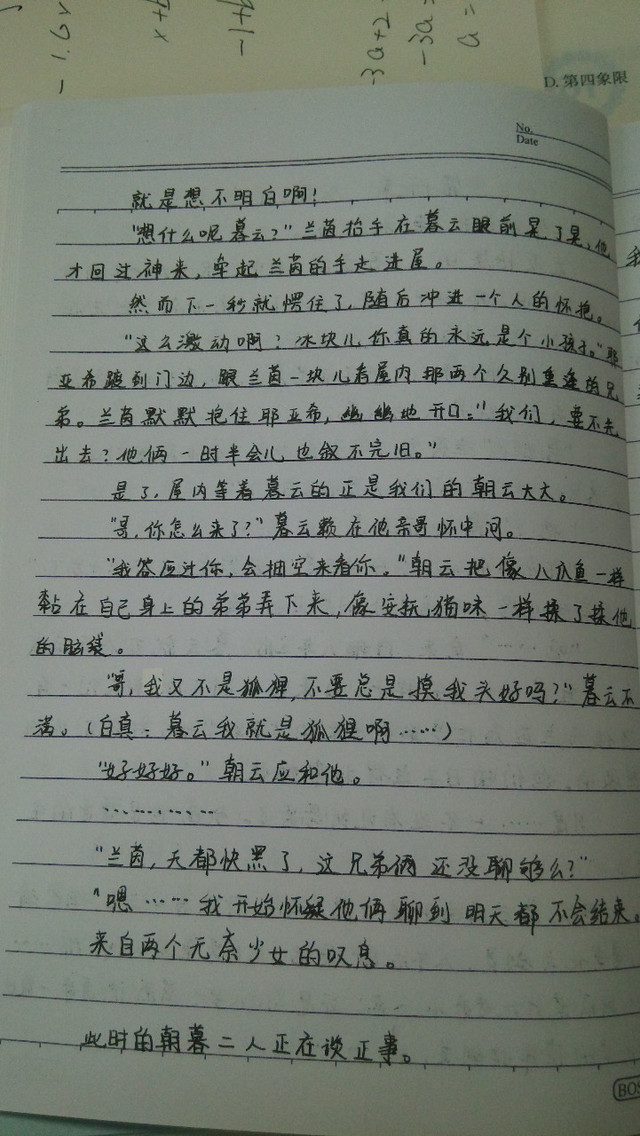 -1.6x
x+
-1+
-3a+2
-3a=
a=
D. 第四象限
No.
Date
就是想不明白啊！
“想什么呢暮云？”兰茵抬手在暮云眼前晃了晃，他
才回过神来，牵起兰茵的手走进屋。
然而下一秒就愣住了，随后冲进一个人的怀抱。
“这么激动啊？冰块儿你真的永远是个小孩子。”耶
亚希踱到门边，跟兰茵一块儿看屋内那两个久别重逢的兄
弟。兰茵默默抱住耶亚希，幽幽地开口：“我们，要不先
出去？他俩一时半会儿也叙不完旧。”
是了，屋内等着暮云的正是我们的朝云大大。
“哥，你怎么来了？”暮云赖在他亲哥怀中问。
“我答应过你，会抽空来看你。”朝云把像八爪鱼一样
黏在自己身上的弟弟弄下来，像安抚猫咪一样揉了揉他
的脑袋。
“哥，我又不是狐狸，不要总是摸我头好吗？”暮云不
满。（白真：暮云我就是狐狸啊……）
“好好好。”朝云应和他。
…………
“兰茵，天都快黑了，这兄弟俩还没聊够么？”
“嗯……我开始怀疑他俩聊到明天都不会结束。
来自两个无奈少女的叹息。
此时的朝暮二人正在谈正事。